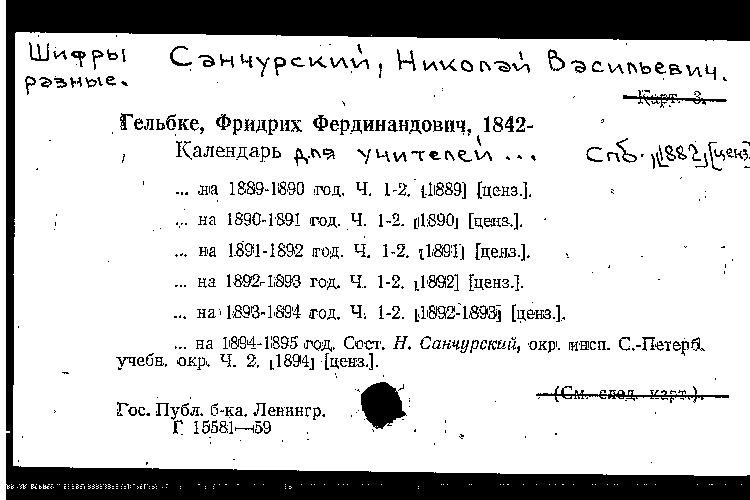 Шифры разные.
Санчурский, Николай Васильевич.
Карт. 3.
Гельбке, Фридрих Фердинандович, 1842-
Календарь для учителей ... Спб. [1882] [ценз
... на 1889-1890 год. Ч. 1-2. [1889] [ценз.].
... на 1890-1891 год. Ч. 1-2. [1890] [ценз.].
... на 1891-1892 год. Ч. 1-2. [1891] [ценз.].
... на 1892-1893 год. Ч. 1-2. [1892] [ценз.].
... на 1893-1894 год. Ч. 1-2. [1892-1893] [ценз.].
... на 1894-1895 год. Сост. Н. Санчурский, окр. инсп. С.-Петерб.
учебн. окр. Ч. 2. [1894] [ценз.].
(См. след. карт.).
Гос. Публ. б-ка. Ленингр.
Г 15581—59